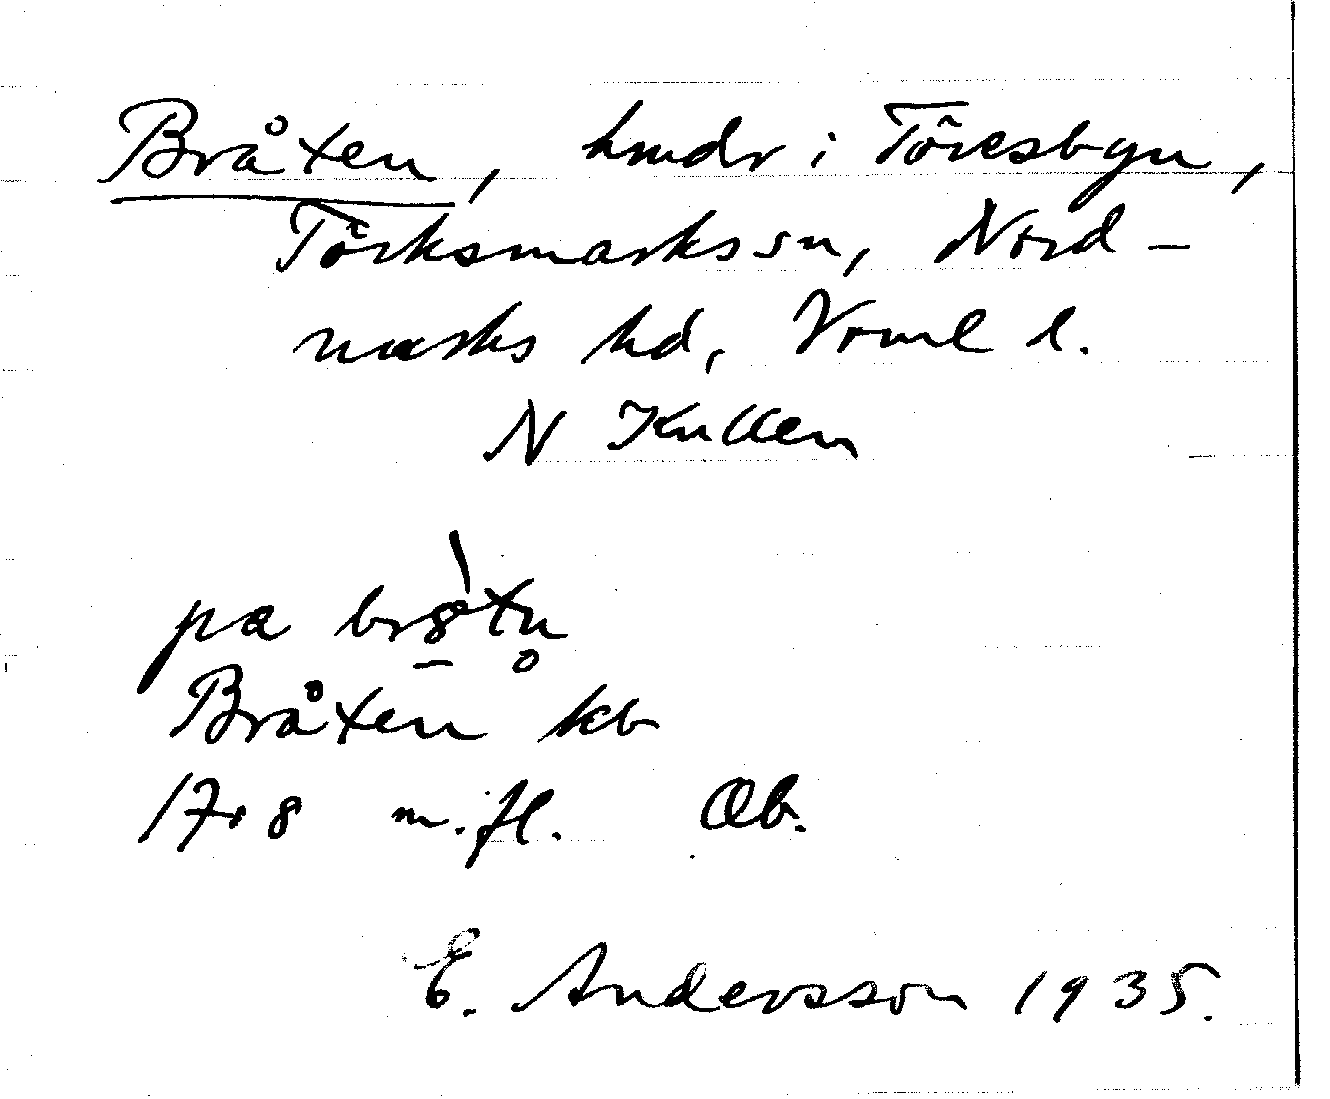 Bråten, hmdr i Töresbyn,
Törksmarks sn, Nord-
marks hd, Vrml l.
N Kullen
pa br8̠̀tn̥
Bråten kb
1708 m.fl. Ob.
E. Andersson 1935.